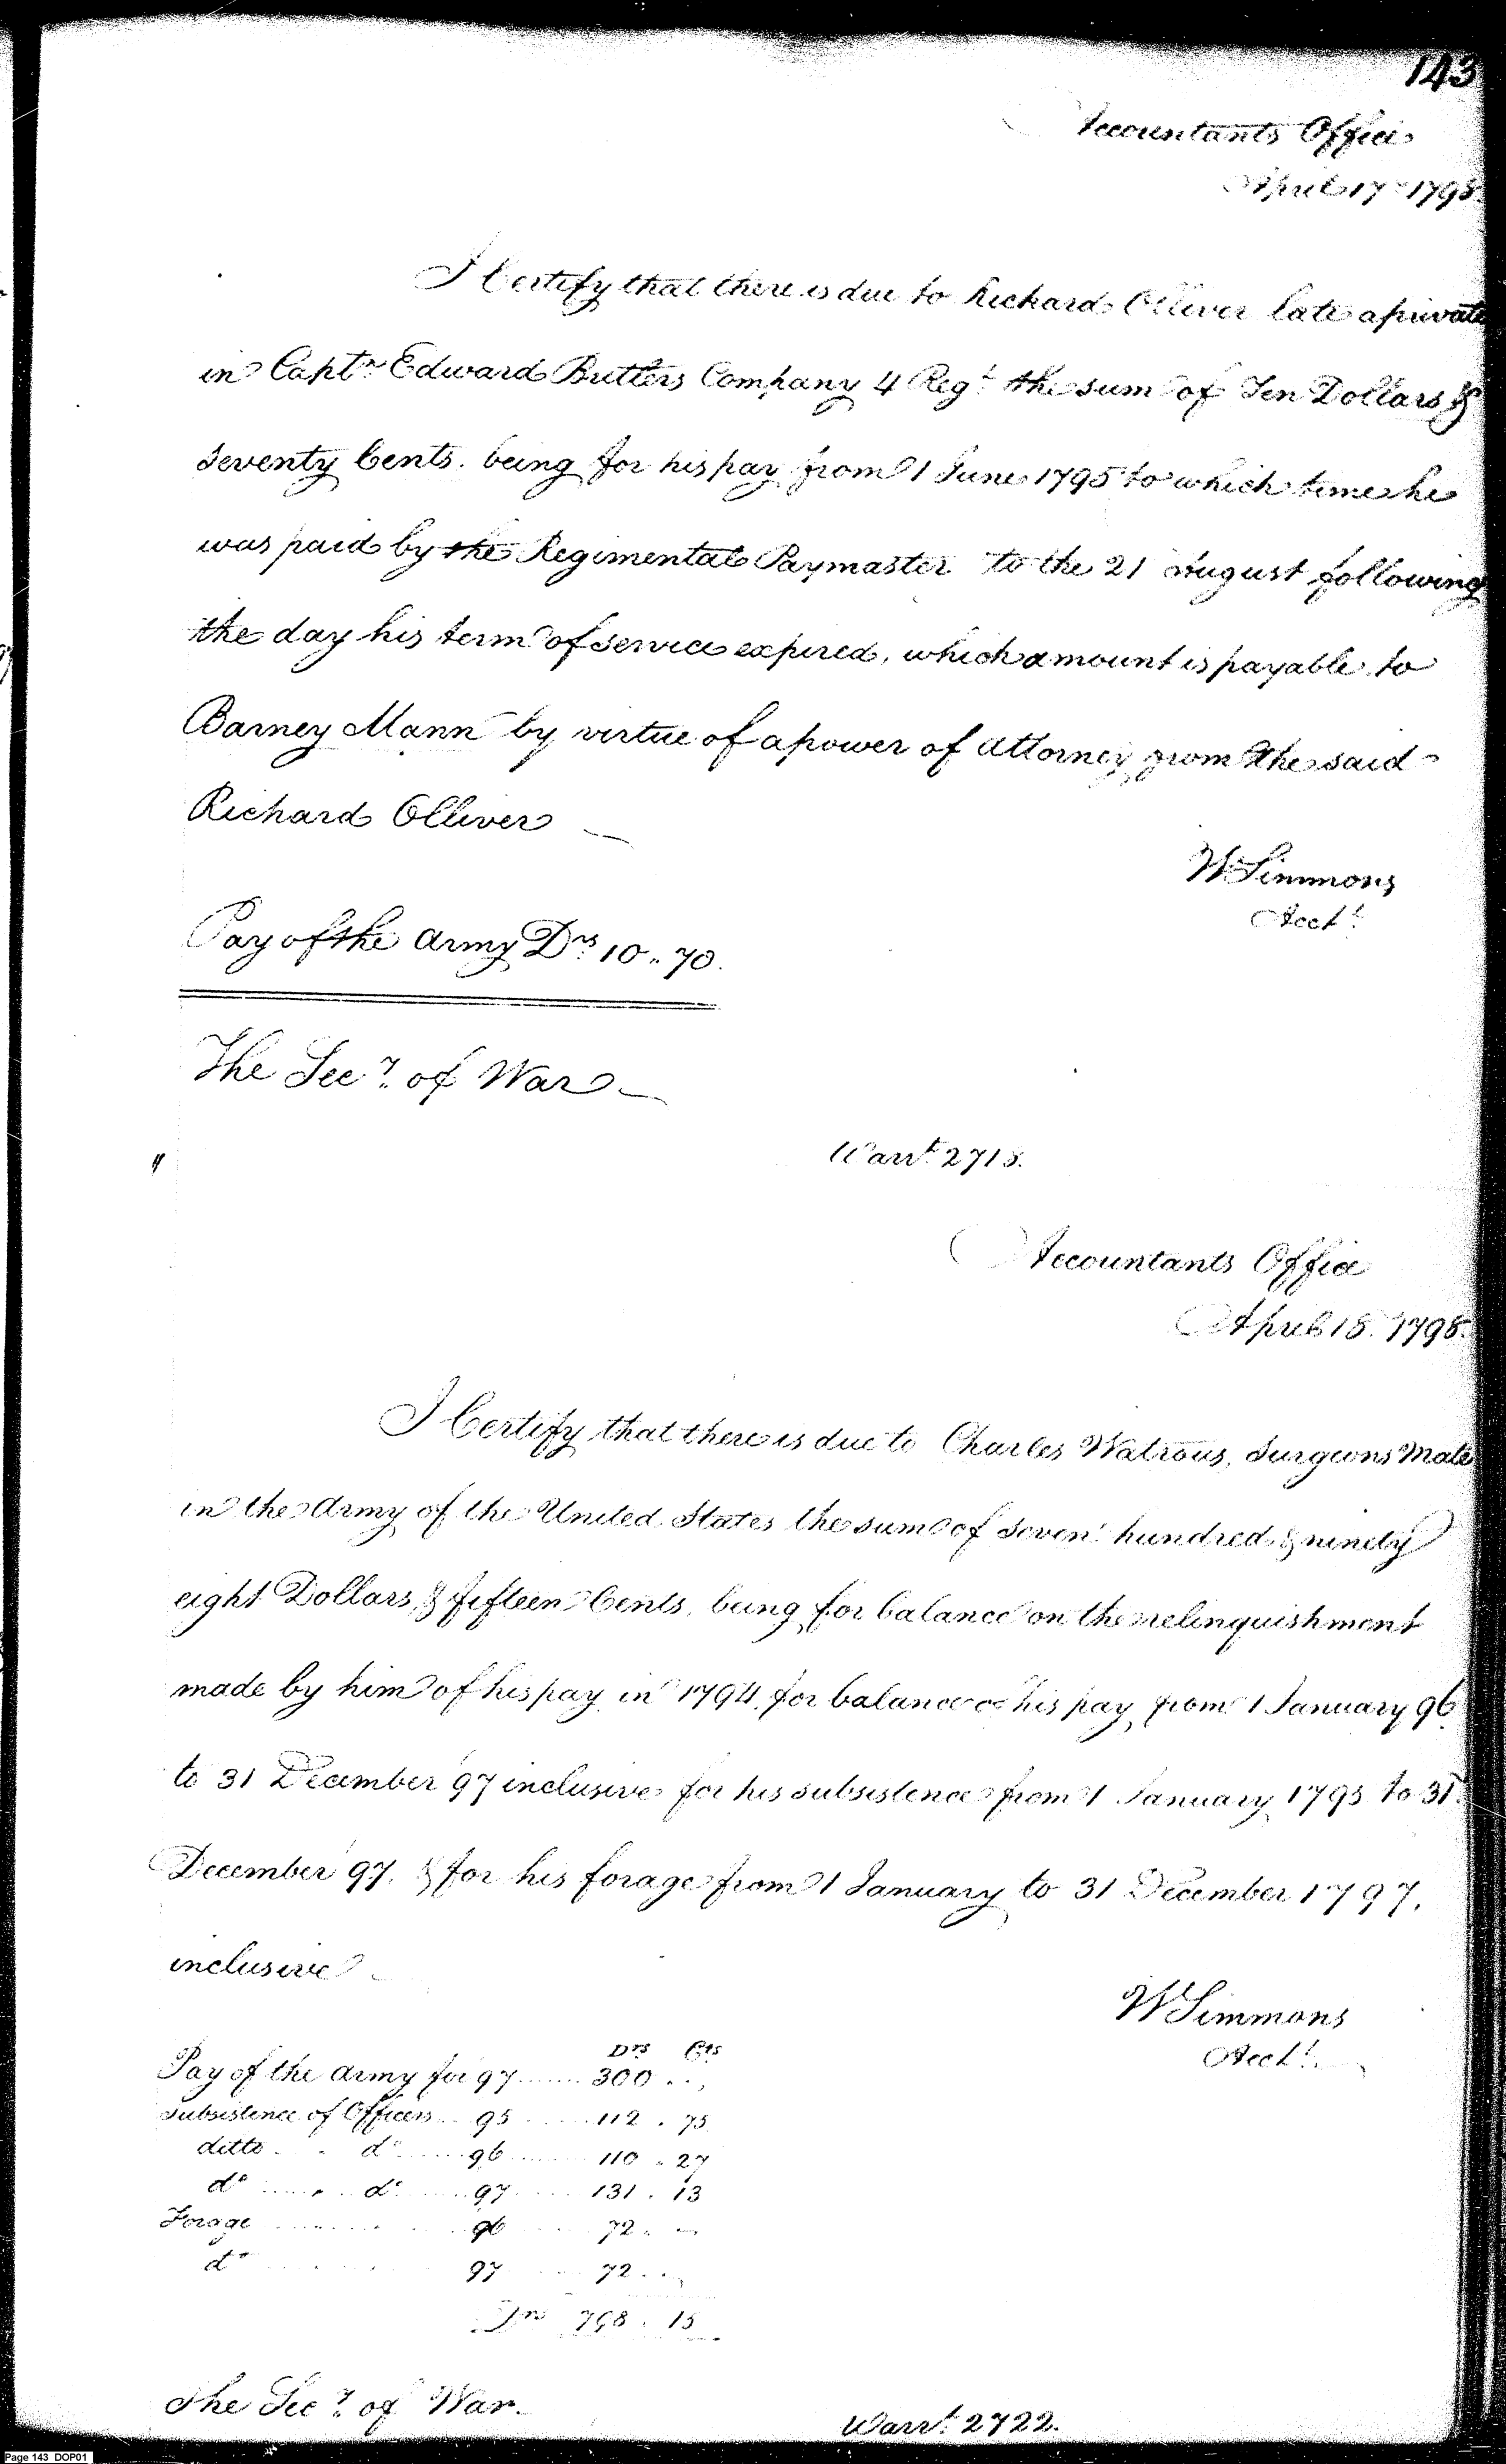 143
Accountants Office
April 17th 1798.
I Certify that there is due to Richard Olliver late a private
in Captn Edward Butlers Company 4 Regt the sum of Ten Dollars &
seventy Cents. being for his pay from 1 June 1795 to which time he
was paid by the Regimental Paymaster to the 21 August following
the day his term of service expired, which amount is payable to
Barney Mann by virtue of a power of Attorney from the said
Richard Olliver
W Simmons
Acct.
Pay of the Army Drs 10.. 70.
The Secy. of War
Warrt. 2718.
Accountants Office
April 18. 1798.
I Certify that there is due to Charles Watrous, Surgeons Mate
in the Army of the United States the sum of seven hundred & ninety
eight Dollars, & fifteen Cents, being for balance on the relinquishment
made by him of his pay in 1794, for balance of his pay from 1 January 96
to 31 December 97 inclusive for his subsistence from 1 January 1795 to 31.
December 97. & for his forage from 1 January to 31 December 1797.
inclusive
W Simmons
Acct.
Drs Cts
Pay of the Army for 97 ....... 300 . . ,
Subsistence of Officers .. 95 ...... 112 . 75
ditto . . do ...... 96 ....... 110 . 27
do ....... do ...... 97 ..... 131 . 13
Forage ............ 96 ..... 72 . . —
do ............ 97 ..... 72 . . ,
Drs 798 . 15
The Secy. of War.
Warrt. 2722.
Page 143 DOP01